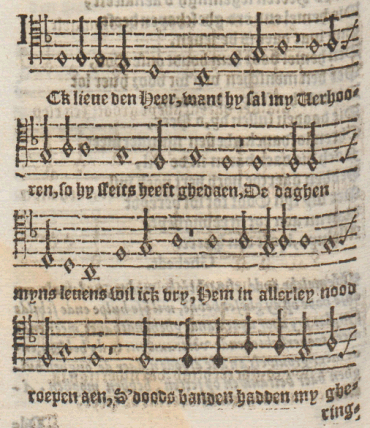 ICk lieve den Heer, want hy sal my Verhoo-
ren, so hy steits heeft ghedaen, De daghen
myns levens wil ick vry, Hem in allerley nood
roepen aen, S'doods banden hadden my ghe-
ring-